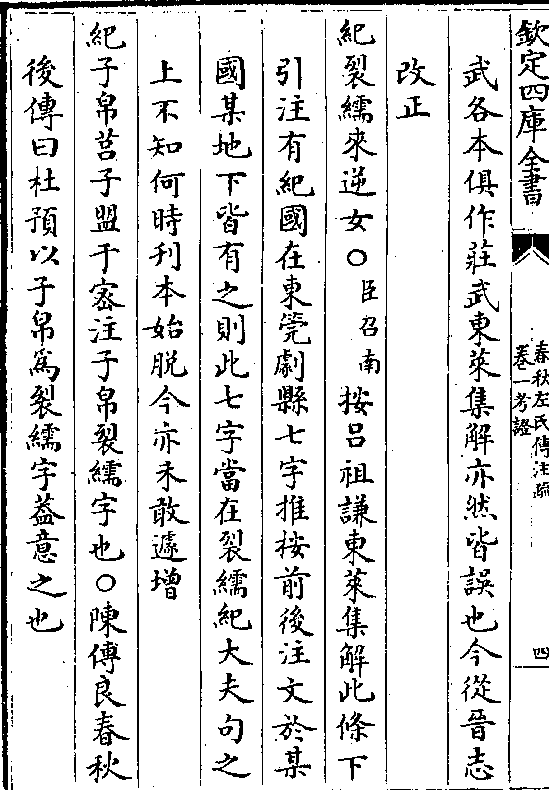 欽定四庫全書
春秋左氏傳注疏
卷一考證
四
武各本俱作莊武東萊集解亦然皆誤也今從晉志
改正
紀裂繻來逆女○臣召南按呂祖謙東萊集解此條下
引注有紀國在東莞劇縣七字推按前後注文於某
國某地下皆有之則此七字當在裂繻紀大夫句之
上不知何時刊本始脫今亦未敢遽增
紀子帛莒子盟于宻注子帛裂繻字也○陳傅良春秋
後傳曰杜預以子帛為裂繻字葢意之也